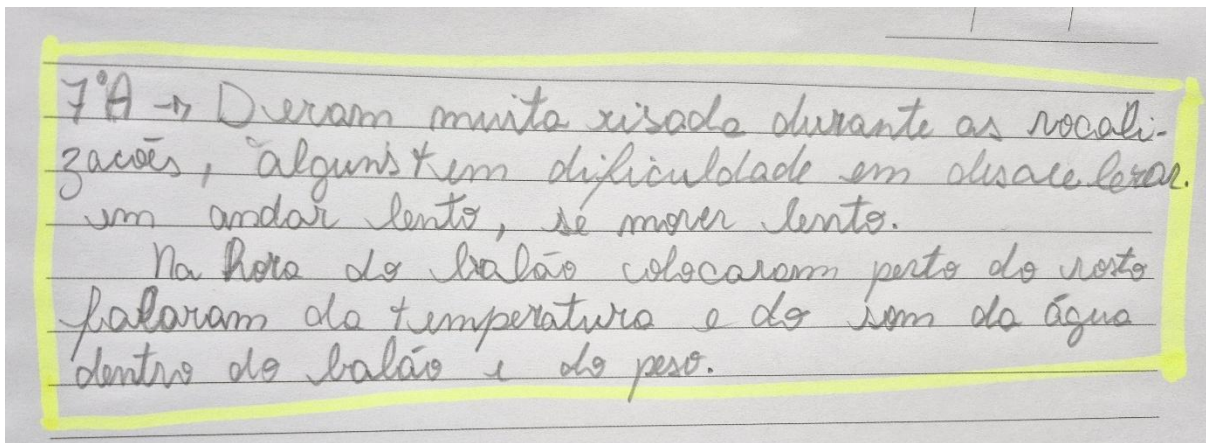 7ºA → Deram muita risada durante as vocali-
zacões, alguns tem dificuldade em desacelerar.
em andar lento, se mover lento.
Na hora do balão colocaram perto do rosto
falaram da temperatura e do som da água
dentro do balão e do peso.